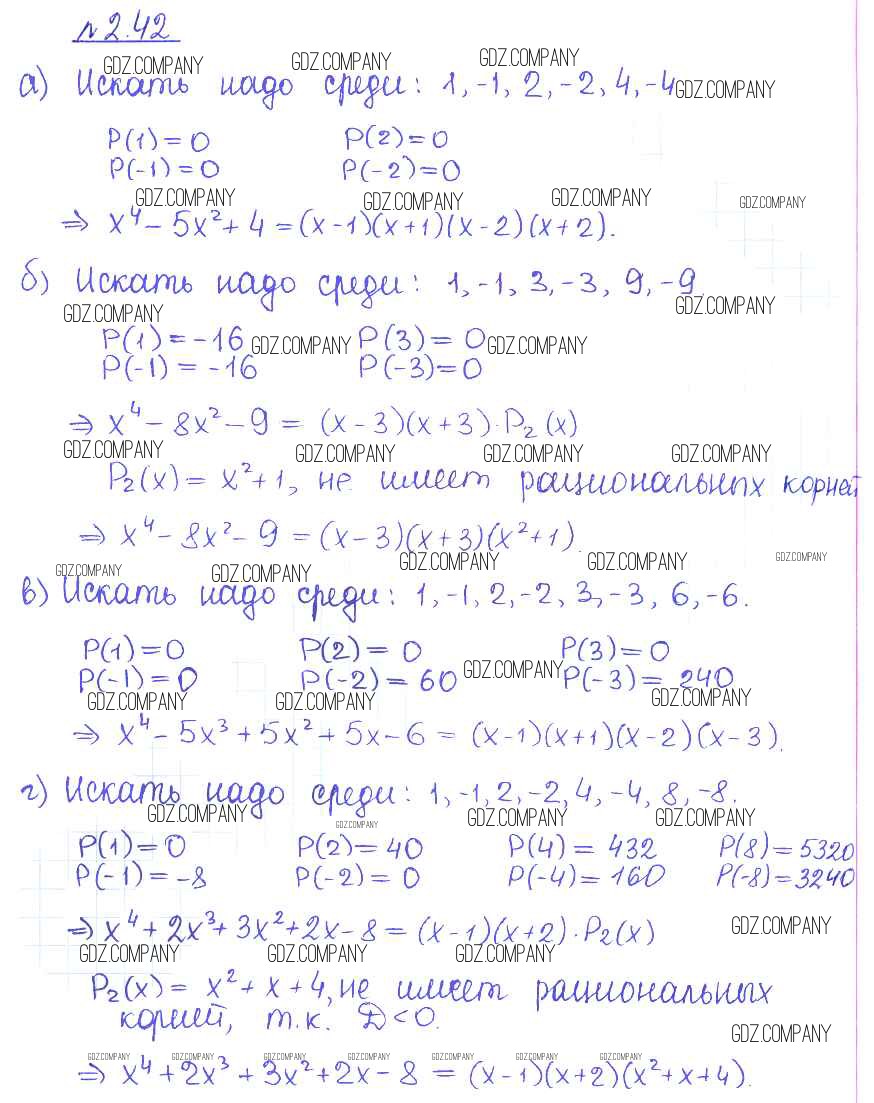 №2.42
GDZ.COMPANY GDZ.COMPANY GDZ.COMPANY
а) Искать надо среди: 1, -1, 2, -2, 4, -4 GDZ.COMPANY
P(1) = 0 P(2) = 0
P(-1) = 0 P(-2) = 0
GDZ.COMPANY GDZ.COMPANY GDZ.COMPANY GDZ.COMPANY
⇒ x⁴ - 5x² + 4 = (x-1)(x+1)(x-2)(x+2).
б) Искать надо среди: 1, -1, 3, -3, 9, -9.
GDZ.COMPANY GDZ.COMPANY
P(1) = -16 GDZ.COMPANY P(3) = 0 GDZ.COMPANY
P(-1) = -16 P(-3) = 0
⇒ x⁴ - 8x² - 9 = (x-3)(x+3)·P₂(x)
GDZ.COMPANY GDZ.COMPANY GDZ.COMPANY GDZ.COMPANY
P₂(x) = x²+1, не имеет рациональных корней
⇒ x⁴ - 8x² - 9 = (x-3)(x+3)(x²+1).
GDZ.COMPANY GDZ.COMPANY GDZ.COMPANY GDZ.COMPANY GDZ.COMPANY
в) Искать надо среди: 1, -1, 2, -2, 3, -3, 6, -6.
P(1) = 0 P(2) = 0 P(3) = 0
P(-1) = 0 P(-2) = 60 GDZ.COMPANY P(-3) = 240
GDZ.COMPANY GDZ.COMPANY GDZ.COMPANY
⇒ x⁴ - 5x³ + 5x² + 5x - 6 = (x-1)(x+1)(x-2)(x-3).
г) Искать надо среди: 1, -1, 2, -2, 4, -4, 8, -8.
GDZ.COMPANY GDZ.COMPANY GDZ.COMPANY GDZ.COMPANY
P(1) = 0 P(2) = 40 P(4) = 432 P(8) = 5320
P(-1) = -8 P(-2) = 0 P(-4) = 160 P(-8) = 3240
⇒ x⁴ + 2x³ + 3x² + 2x - 8 = (x-1)(x+2)·P₂(x) GDZ.COMPANY
GDZ.COMPANY GDZ.COMPANY GDZ.COMPANY
P₂(x) = x² + x + 4, не имеет рациональных
корней, т.к. D < 0.
GDZ.COMPANY
GDZ.COMPANY GDZ.COMPANY GDZ.COMPANY GDZ.COMPANY GDZ.COMPANY GDZ.COMPANY GDZ.COMPANY
⇒ x⁴ + 2x³ + 3x² + 2x - 8 = (x-1)(x+2)(x²+x+4).